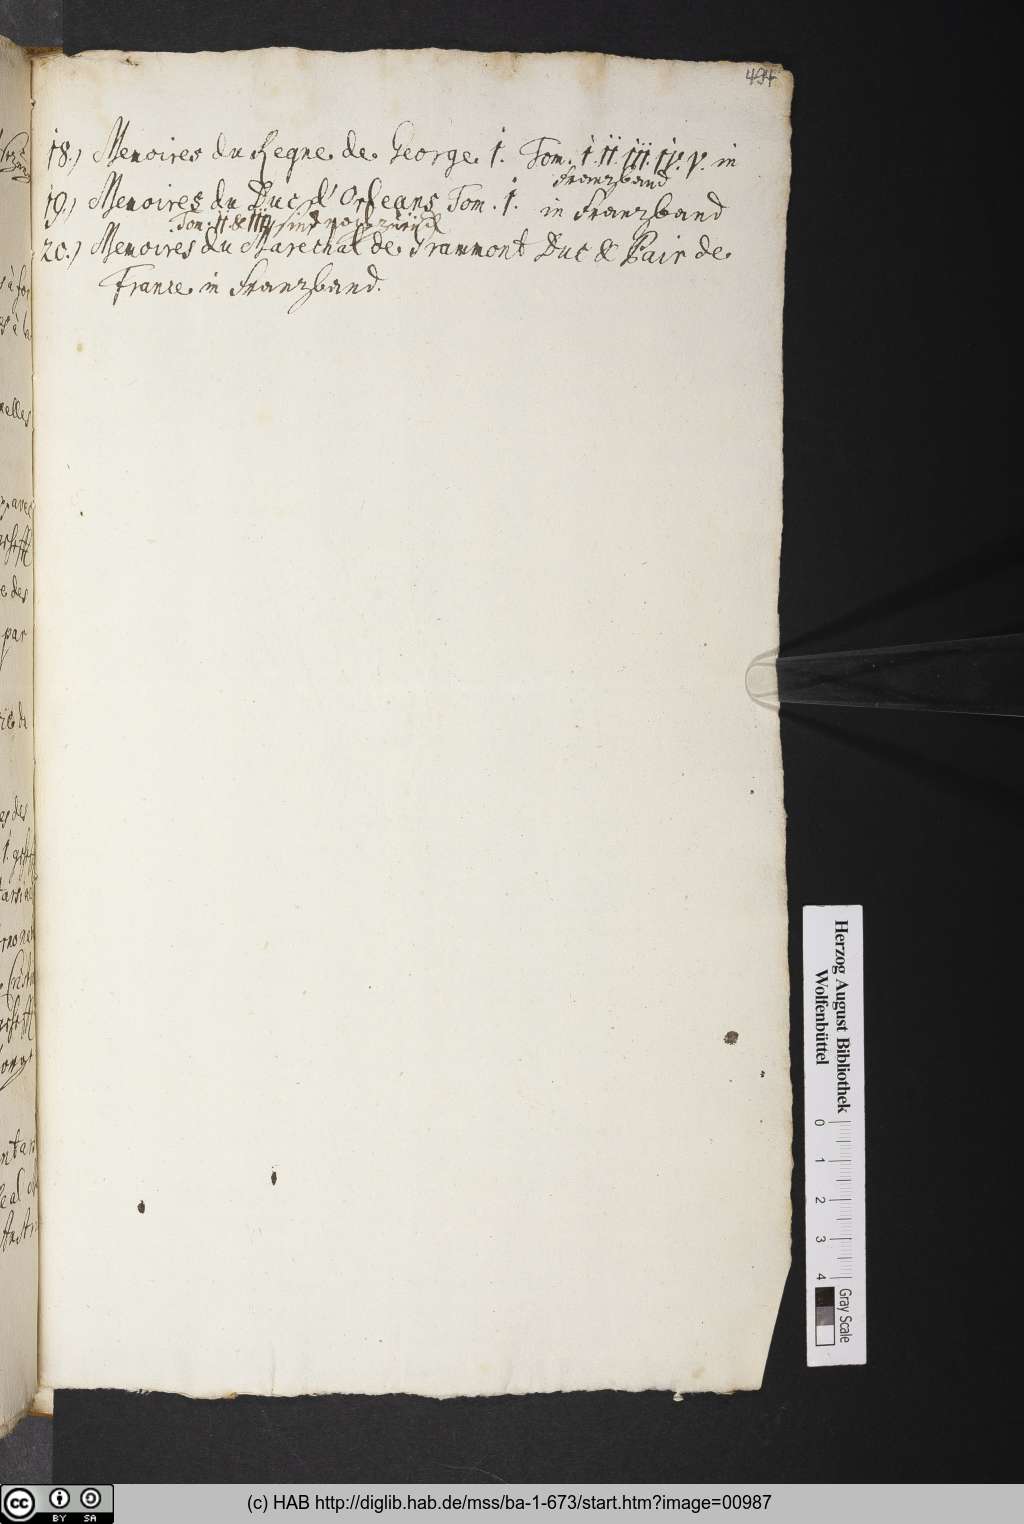 494
18.) Memoires du Regne de George I. Tom. I. II. III. IV. V. in
Franzband
19.) Memoires du Duc d'Orleans Tom. I. in Franzband
Tom. II & III sind noch zurück
20.) Memoires du Marechal de Grammont Duc & Pair de
France in Franzband.
nelles
avec
e des
par
es des
Herzog August Bibliothek
Wolfenbüttel
0 1 2 3 4
Gray Scale
(c) HAB http://diglib.hab.de/mss/ba-1-673/start.htm?image=00987
cc BY SA